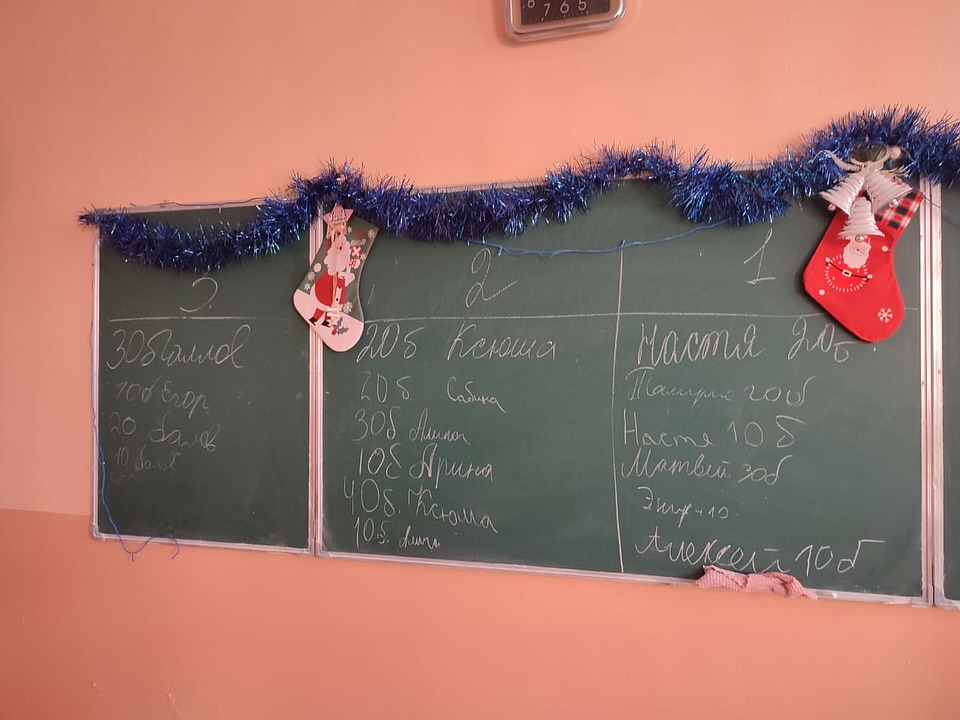 8 7 6 5
3
30 баллов
10б Егор
20 балов
10 балл
2
20б Ксюша
20б Сабина
30б Алина
10б Арина
40б. Ксюша
10б.
1
Настя 20б
20б
Настя 10б
Матвей 30б
+10.
Алексей 10б